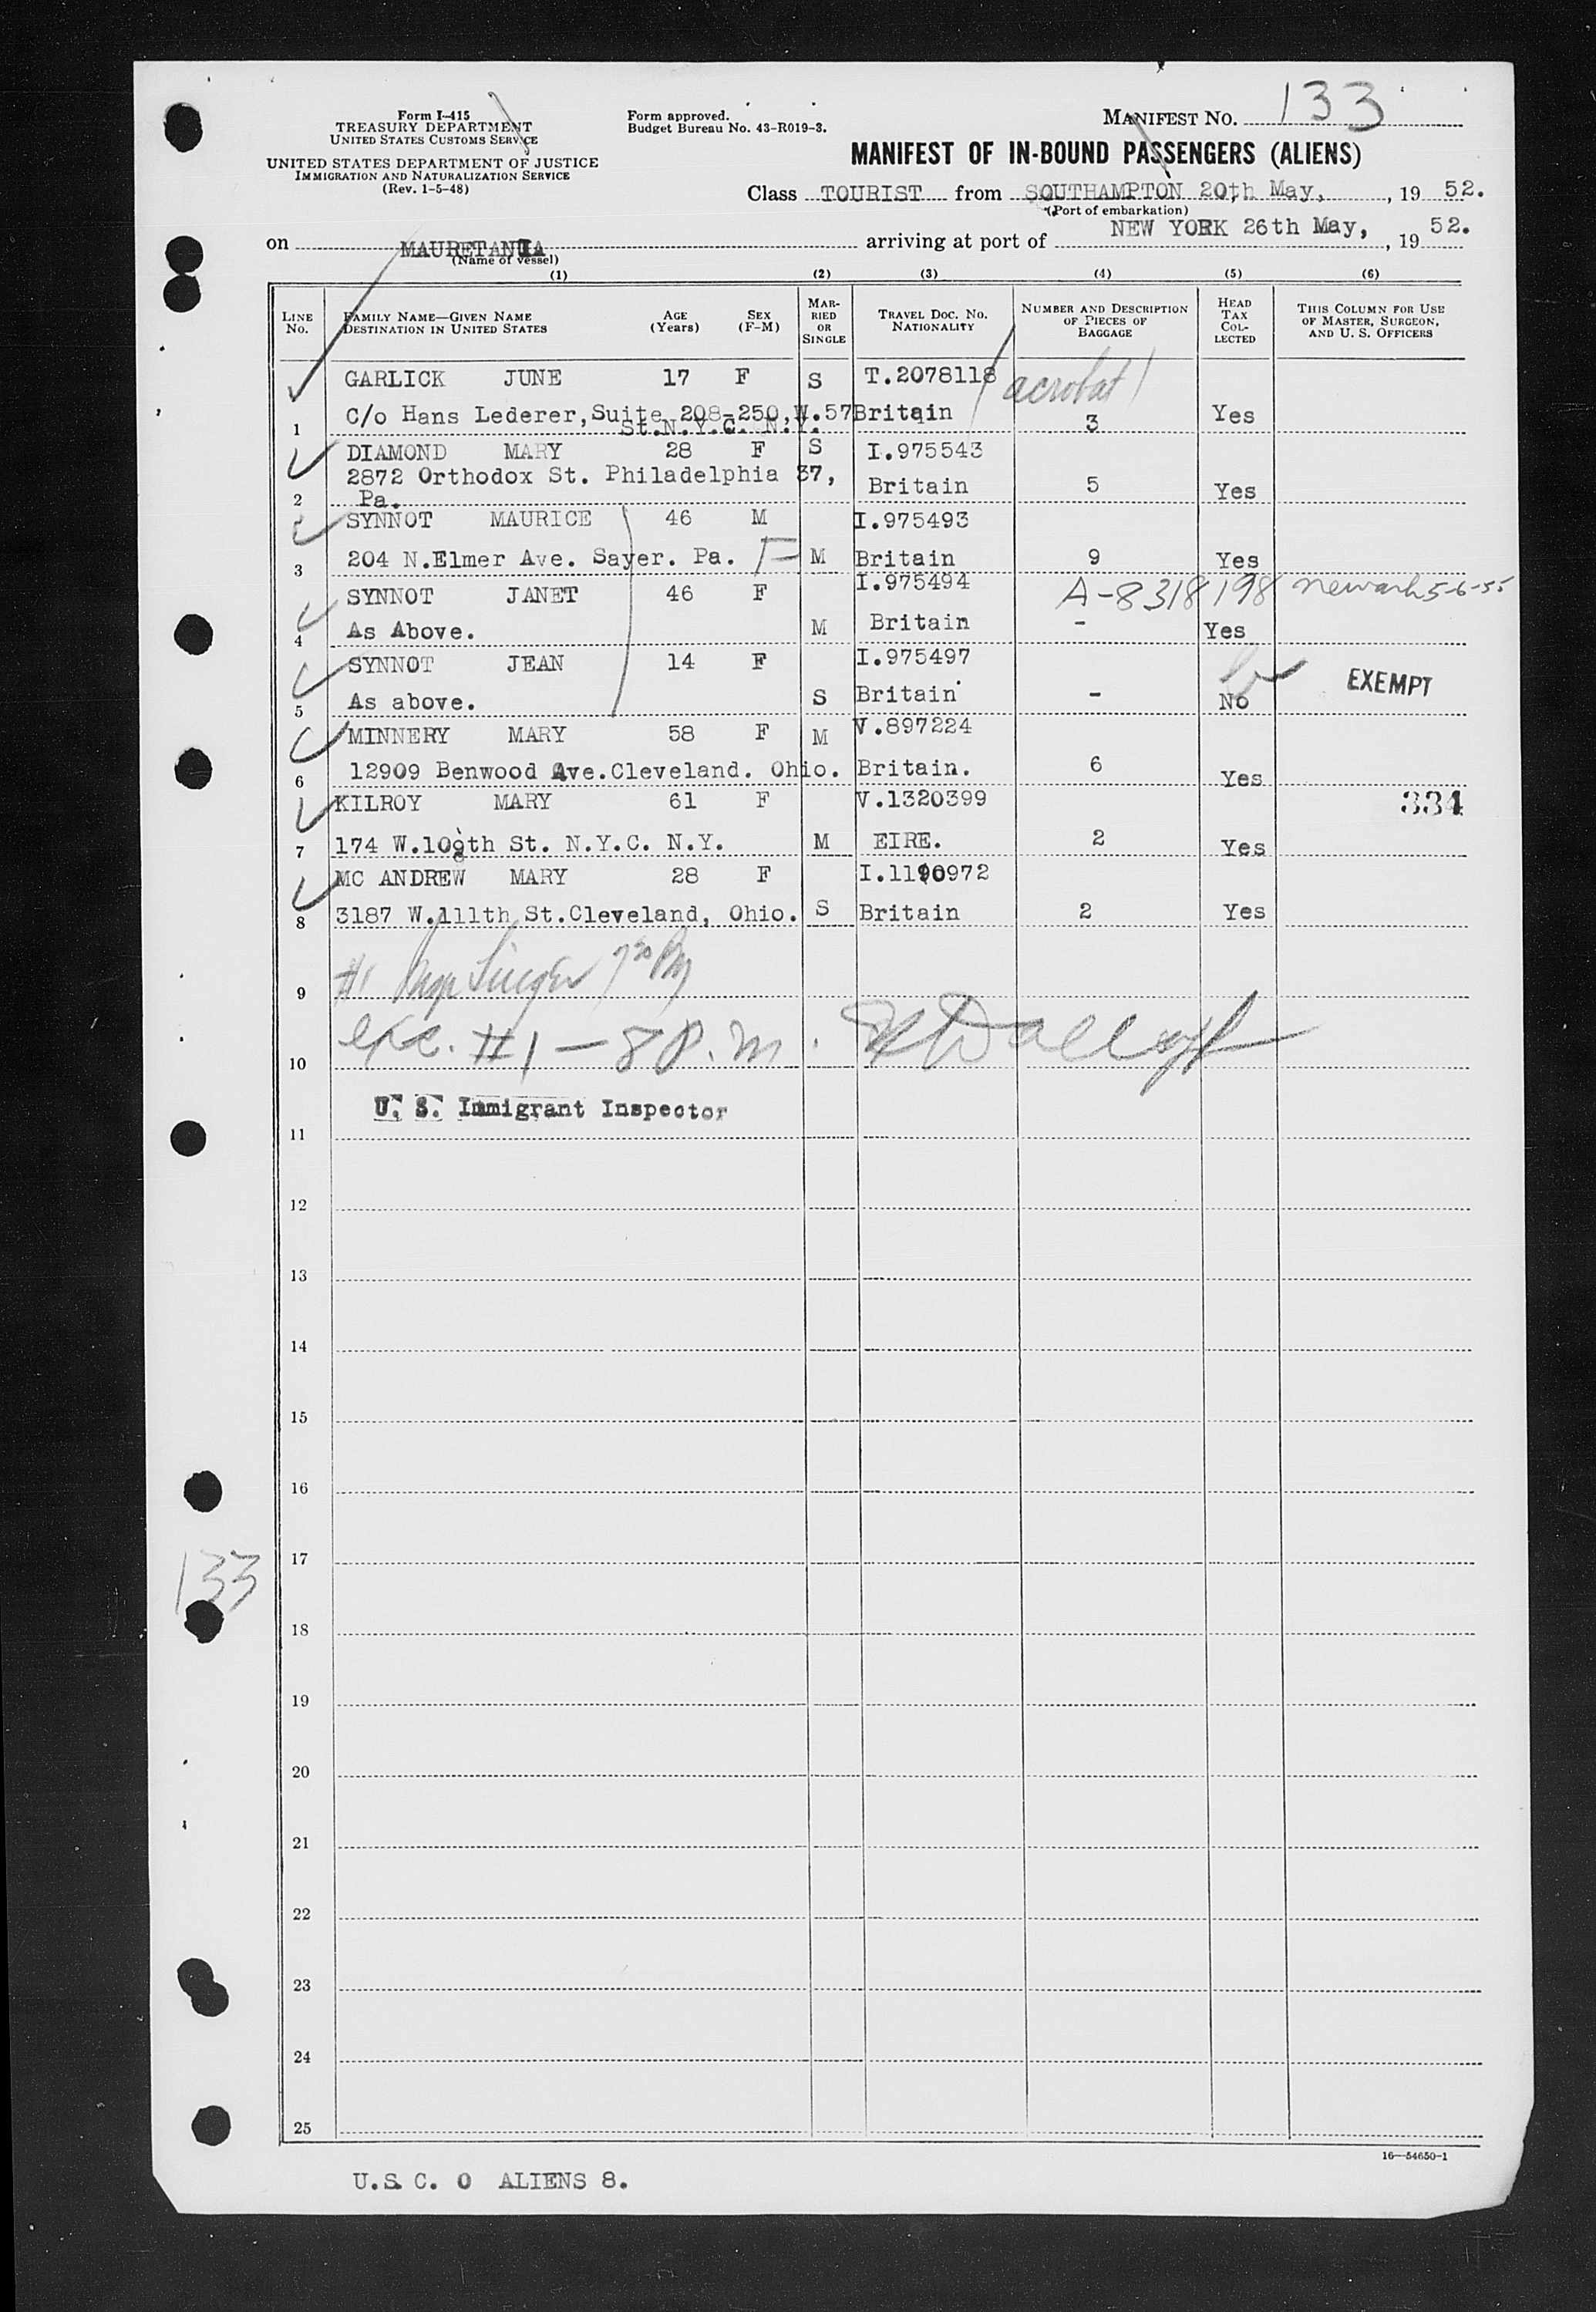 Form I-415
TREASURY DEPARTMENT
UNITED STATES CUSTOMS SERVICE
UNITED STATES DEPARTMENT OF JUSTICE
IMMIGRATION AND NATURALIZATION SERVICE
(Rev. 1-5-48)
Form approved.
Budget Bureau No. 43-R019-3.
MANIFEST NO. 133
MANIFEST OF IN-BOUND PASSENGERS (ALIENS)
Class TOURIST from SOUTHAMPTON 20th May, , 19 52.
(Port of embarkation)
on MAURETANIA arriving at port of NEW YORK 26th May, , 19 52.
(Name of vessel)
(1) (2) (3) (4) (5) (6)
LINE NO. FAMILY NAME—GIVEN NAME DESTINATION IN UNITED STATES AGE (Years) SEX (F-M) MARRIED OR SINGLE TRAVEL DOC. NO. NATIONALITY NUMBER AND DESCRIPTION OF PIECES OF BAGGAGE HEAD TAX COLLECTED THIS COLUMN FOR USE OF MASTER, SURGEON, AND U. S. OFFICERS
GARLICK JUNE 17 F S T.2078118 acrobat
1 C/o Hans Lederer,Suite 208-250,W.57 Britain 3 Yes
St.N.Y.C. N.Y.
DIAMOND MARY 28 F S I.975543
2872 Orthodox St. Philadelphia 37,
2 Pa. Britain 5 Yes
SYNNOT MAURICE 46 M I.975493
3 204 N.Elmer Ave. Sayer. Pa. M Britain 9 Yes
SYNNOT JANET 46 F I.975494 A-8318198 Newark 5-6-55
4 As Above. M Britain - Yes
SYNNOT JEAN 14 F I.975497 EXEMPT
5 As above. S Britain - No
MINNERY MARY 58 F M V.897224
6 12909 Benwood Ave.Cleveland. Ohio. Britain. 6 Yes
KILROY MARY 61 F V.1320399 334
7 174 W.109th St. N.Y.C. N.Y. M EIRE. 2 Yes
MC ANDREW MARY 28 F I.1190972
8 3187 W.111th St.Cleveland, Ohio. S Britain 2 Yes
9 #1 Singer 7 30 PM
10 exc. #1 - 8 P.M.
U. S. Immigrant Inspector
11
12
13
14
15
16
17
133
18
19
20
21
22
23
24
25
16—54650-1
U.S.C. 0 ALIENS 8.